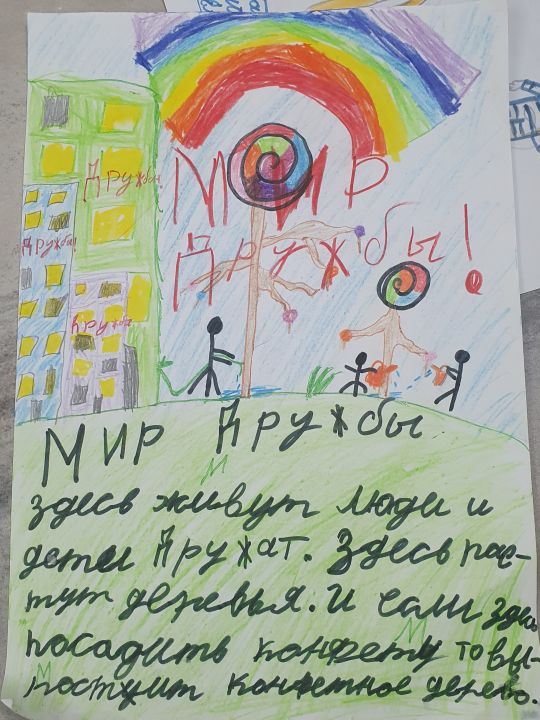 Дружбы!
Мир
Дружбы!
Дружбы!
Дружбы
Мир Дружбы
Здесь живут люди и
дети Дружат. Здесь рас-
тут деревья. И если здесь
посадить конфету то вы-
ростит конфетное дерево.